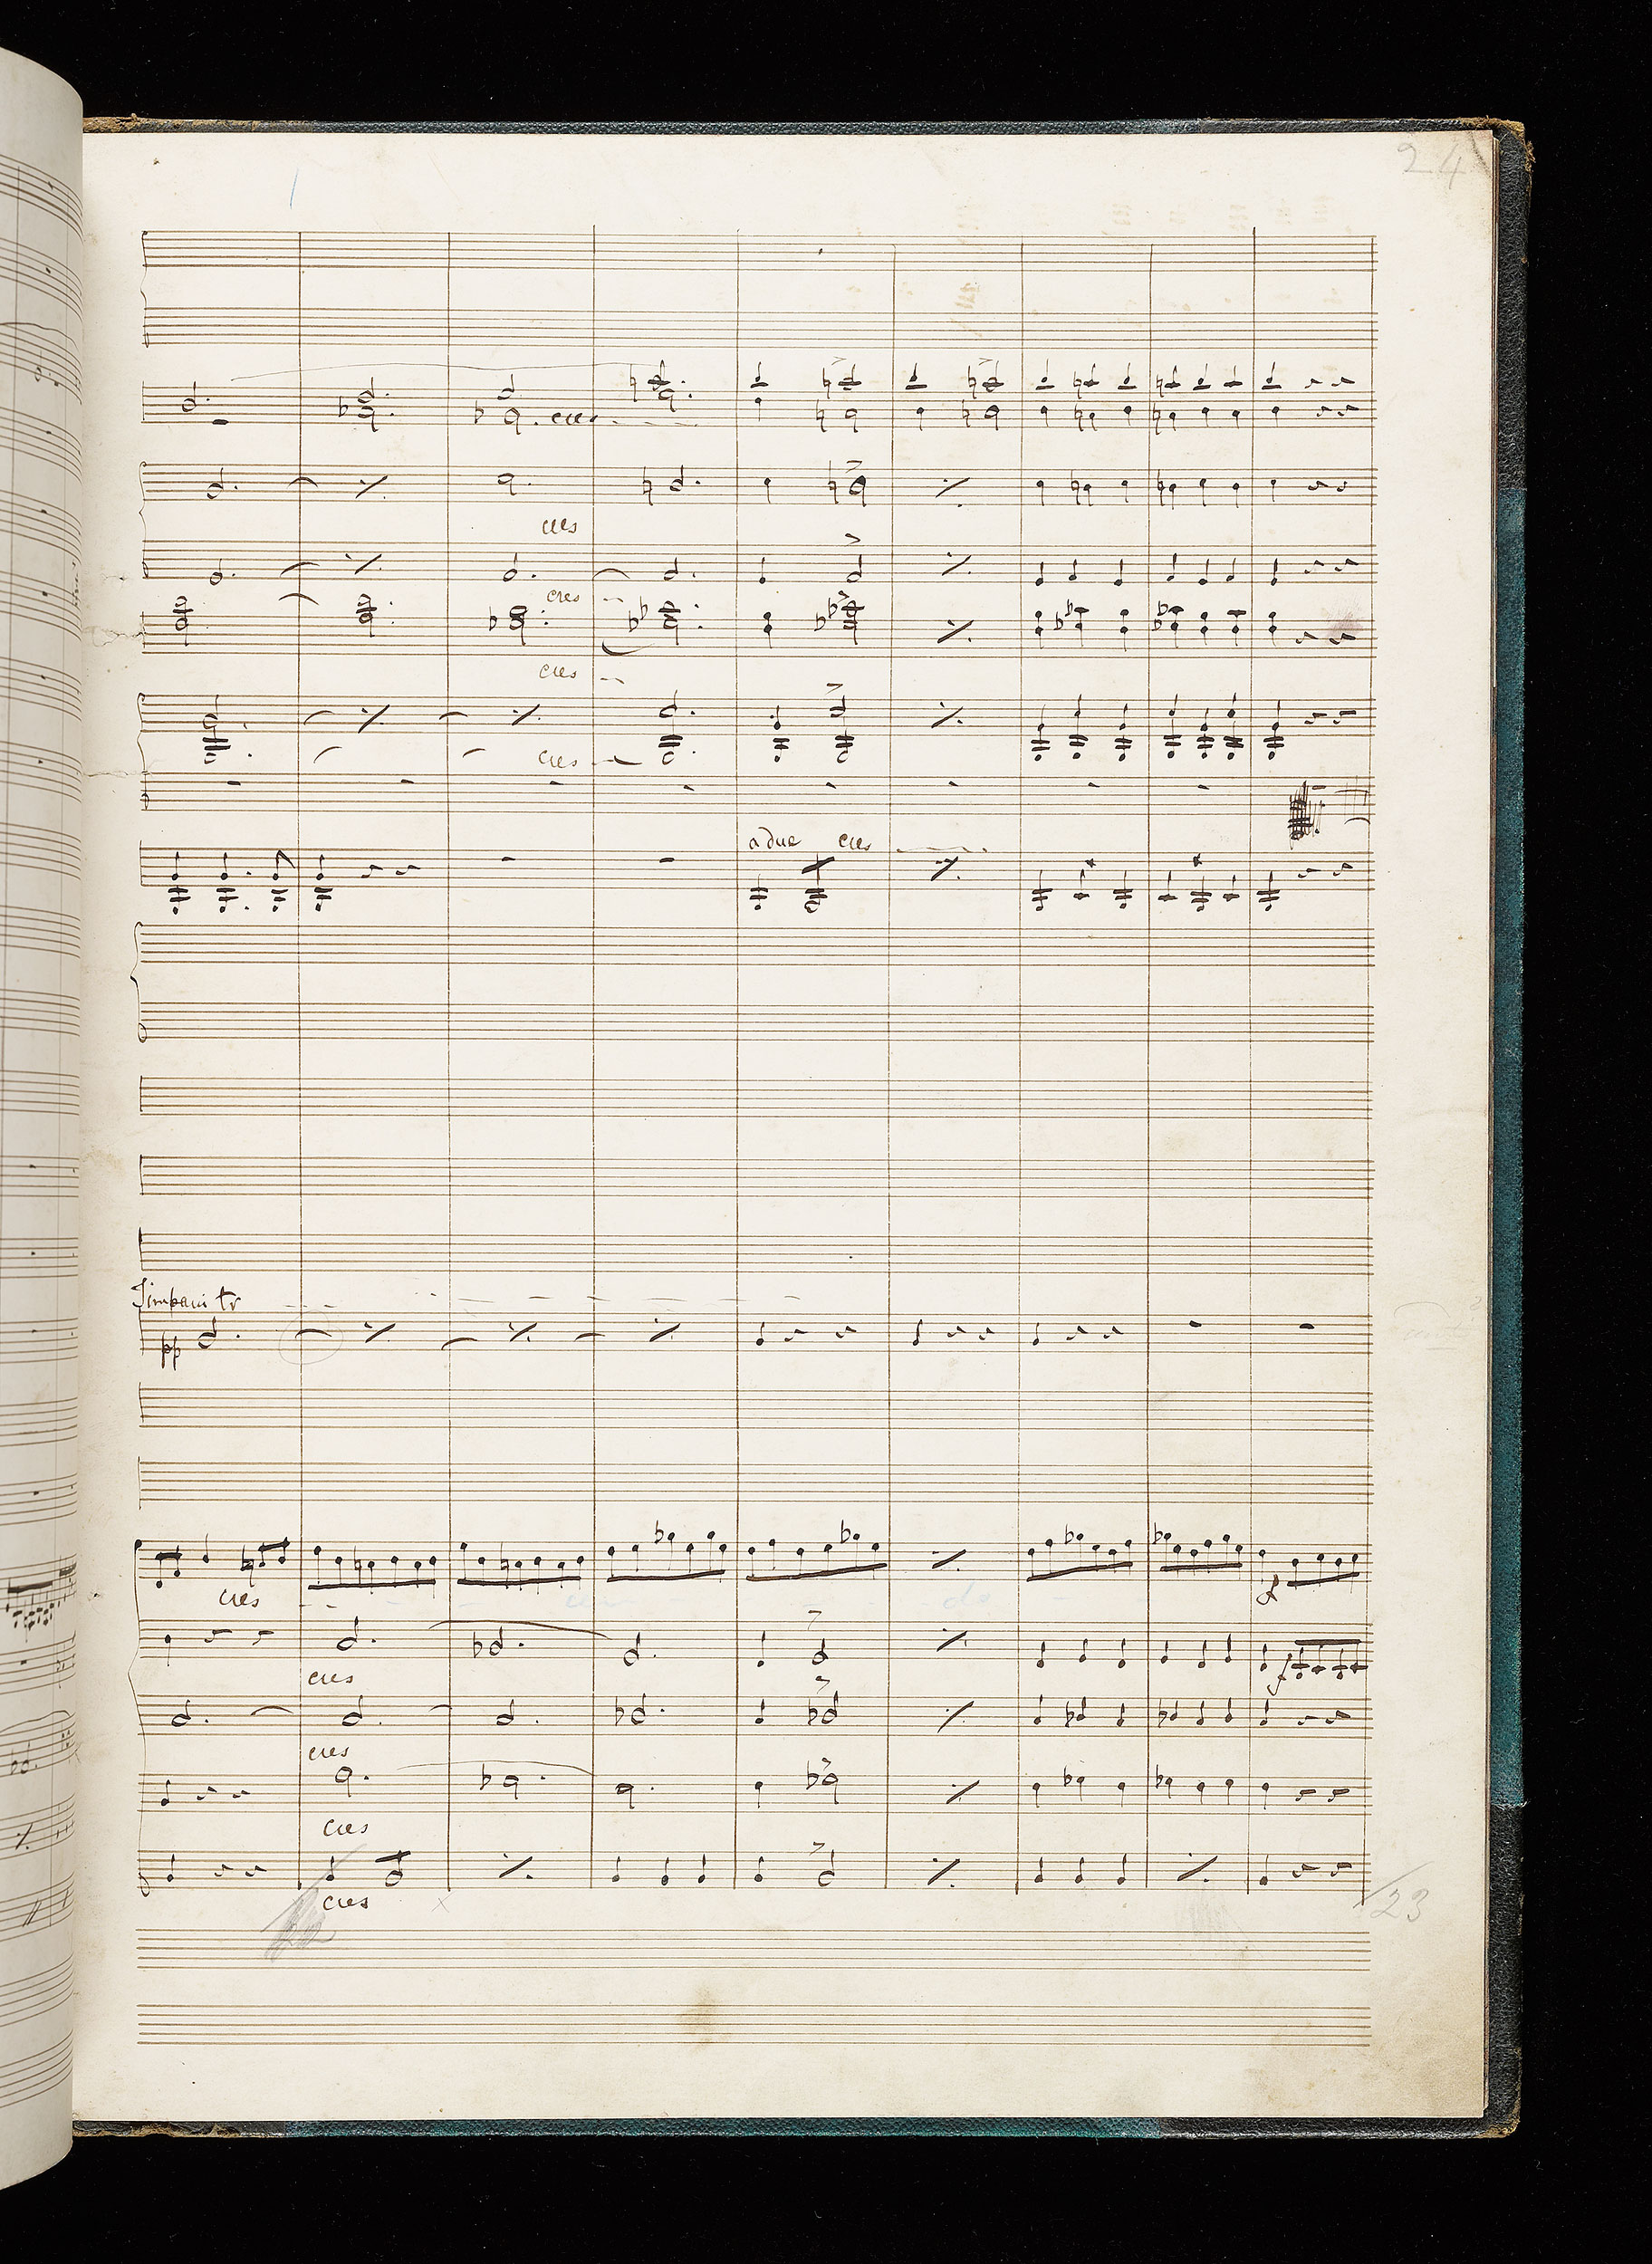 24
cres
cres
cres
cres
cres
a due cres
Timpani tr
pp
cres cen do
f
cres
f
cres
cres
cres
23